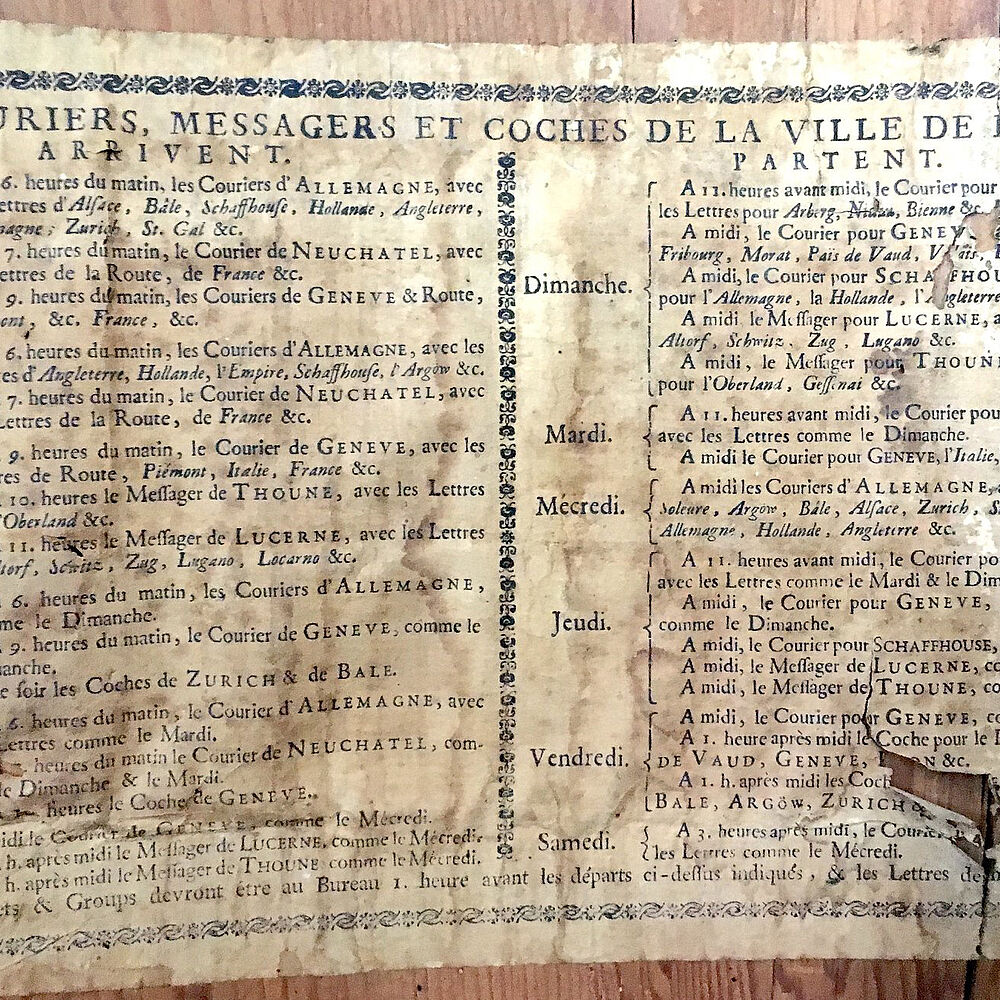 URIERS, MESSAGERS ET COCHES DE LA VILLE DE
ARRIVENT.
6. heures du matin, les Couriers d'ALLEMAGNE, avec
ettres d'Alſace, Bâle, Schaffhouſe, Hollande, Angleterre,
magne, Zurich, St. Gal &c.
7. heures du matin, le Courier de NEUCHATEL, avec
ettres de la Route, de France &c.
9. heures du matin, les Couriers de GENEVE & Route,
ont, &c. France, &c.
6. heures du matin, les Couriers d'ALLEMAGNE, avec les
es d'Angleterre, Hollande, l'Empire, Schaffhouſe, l'Argöw &c.
7. heures du matin, le Courier de NEUCHATEL, avec
Lettres de la Route, de France &c.
9. heures du matin, le Courier de GENEVE, avec les
res de Route, Piémont, Italie, France &c.
10. heures le Meſſager de THOUNE, avec les Lettres
'Oberland &c.
11. heures le Meſſager de LUCERNE, avec les Lettres
ltorf, Schwitz, Zug, Lugano, Locarno &c.
6. heures du matin, les Couriers d'ALLEMAGNE,
me le Dimanche.
9. heures du matin, le Courier de GENEVE, comme le
anche.
e ſoir les Coches de ZURICH & de BALE.
6. heures du matin, le Courier d'ALLEMAGNE, avec
Lettres comme le Mardi.
heures du matin le Courier de NEUCHATEL, com-
le Dimanche & le Mardi.
heures le Coche de GENEVE.
midi le Courier de GENEVE, comme le Mécredi.
h. après midi le Meſſager de LUCERNE, comme le Mécredi.
h. après midi le Meſſager de THOUNE comme le Mécredi.
PARTENT.
Dimanche.
A 11. heures avant midi, le Courier pour
les Lettres pour Arberg, Nidau, Bienne &c.
A midi, le Courier pour GENEV
Fribourg, Morat, Païs de Vaud, Valais,
A midi, le Courier pour SCHAFFHOU
pour l'Allemagne, la Hollande, l'Angleterre
A midi le Meſſager pour LUCERNE, a
Altorf, Schwitz, Zug, Lugano &c.
A midi, le Meſſager pour THOUN
pour l'Oberland, Geſſenai &c.
Mardi.
A 11. heures avant midi, le Courier pou
avec les Lettres comme le Dimanche.
A midi le Courier pour GENEVE, l'Italie,
Mécredi.
A midi les Couriers d'ALLEMAGNE,
Soleure, Argöw, Bâle, Alſace, Zurich, S
Allemagne, Hollande, Angleterre &c.
Jeudi.
A 11. heures avant midi, le Courier po
avec les Lettres comme le Mardi & le Dim
A midi, le Courier pour GENEVE,
comme le Dimanche.
A midi, le Courier pour SCHAFFHOUSE,
A midi, le Meſſager de LUCERNE, co
A midi, le Meſſager de THOUNE, co
Vendredi.
A midi, le Courier pour GENEVE, co
A 1. heure après midi le Coche pour le
DE VAUD, GENEVE, LYON &c.
A 1. h. après midi les Coch
BALE, ARGÖW, ZURICH &
Samedi.
A 3. heures après midi, le Courier
les Lettres comme le Mécredi.
ets & Groups devront être au Bureau 1. heure avant les départs ci-deſſus indiqués, & les Lettres de